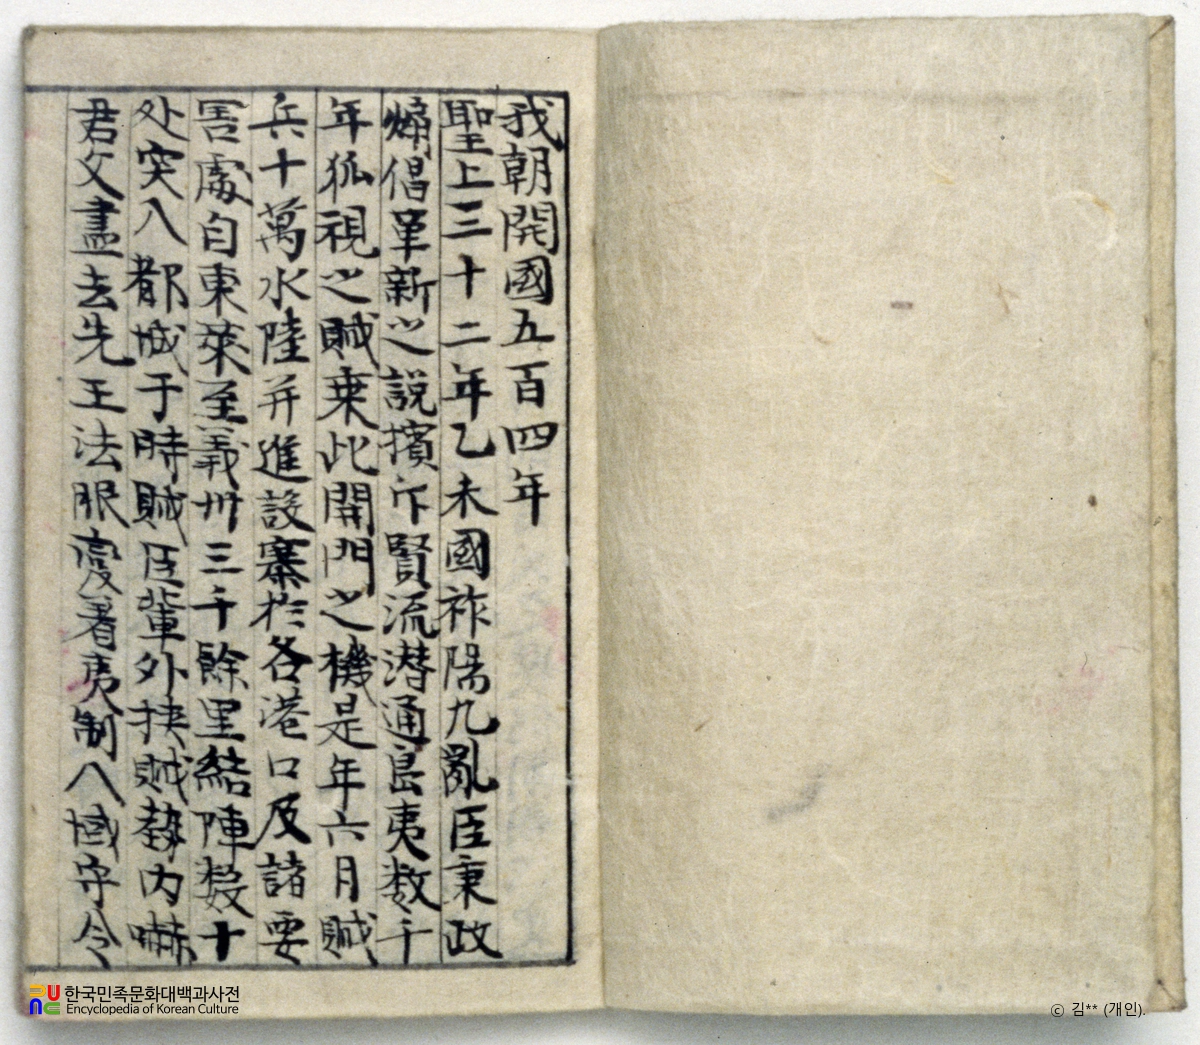 我朝開國五百四年
聖上三十二年乙未國祚陽九亂臣秉政
倡革新之說擯斥賢流潛通島夷数千
年狐視之賊乗此開門之機是年六月賊
兵十萬水陸并進設寨於各港口及諸要
害處自東萊至義州三千餘里結陣数十
处突入都城于時賊臣輩外挟賊勢内嚇
君父盡去先王法服变著夷制八域守令
한국민족문화대백과사전
Encyclopedia of Korean Culture
ⓒ 김** (개인).